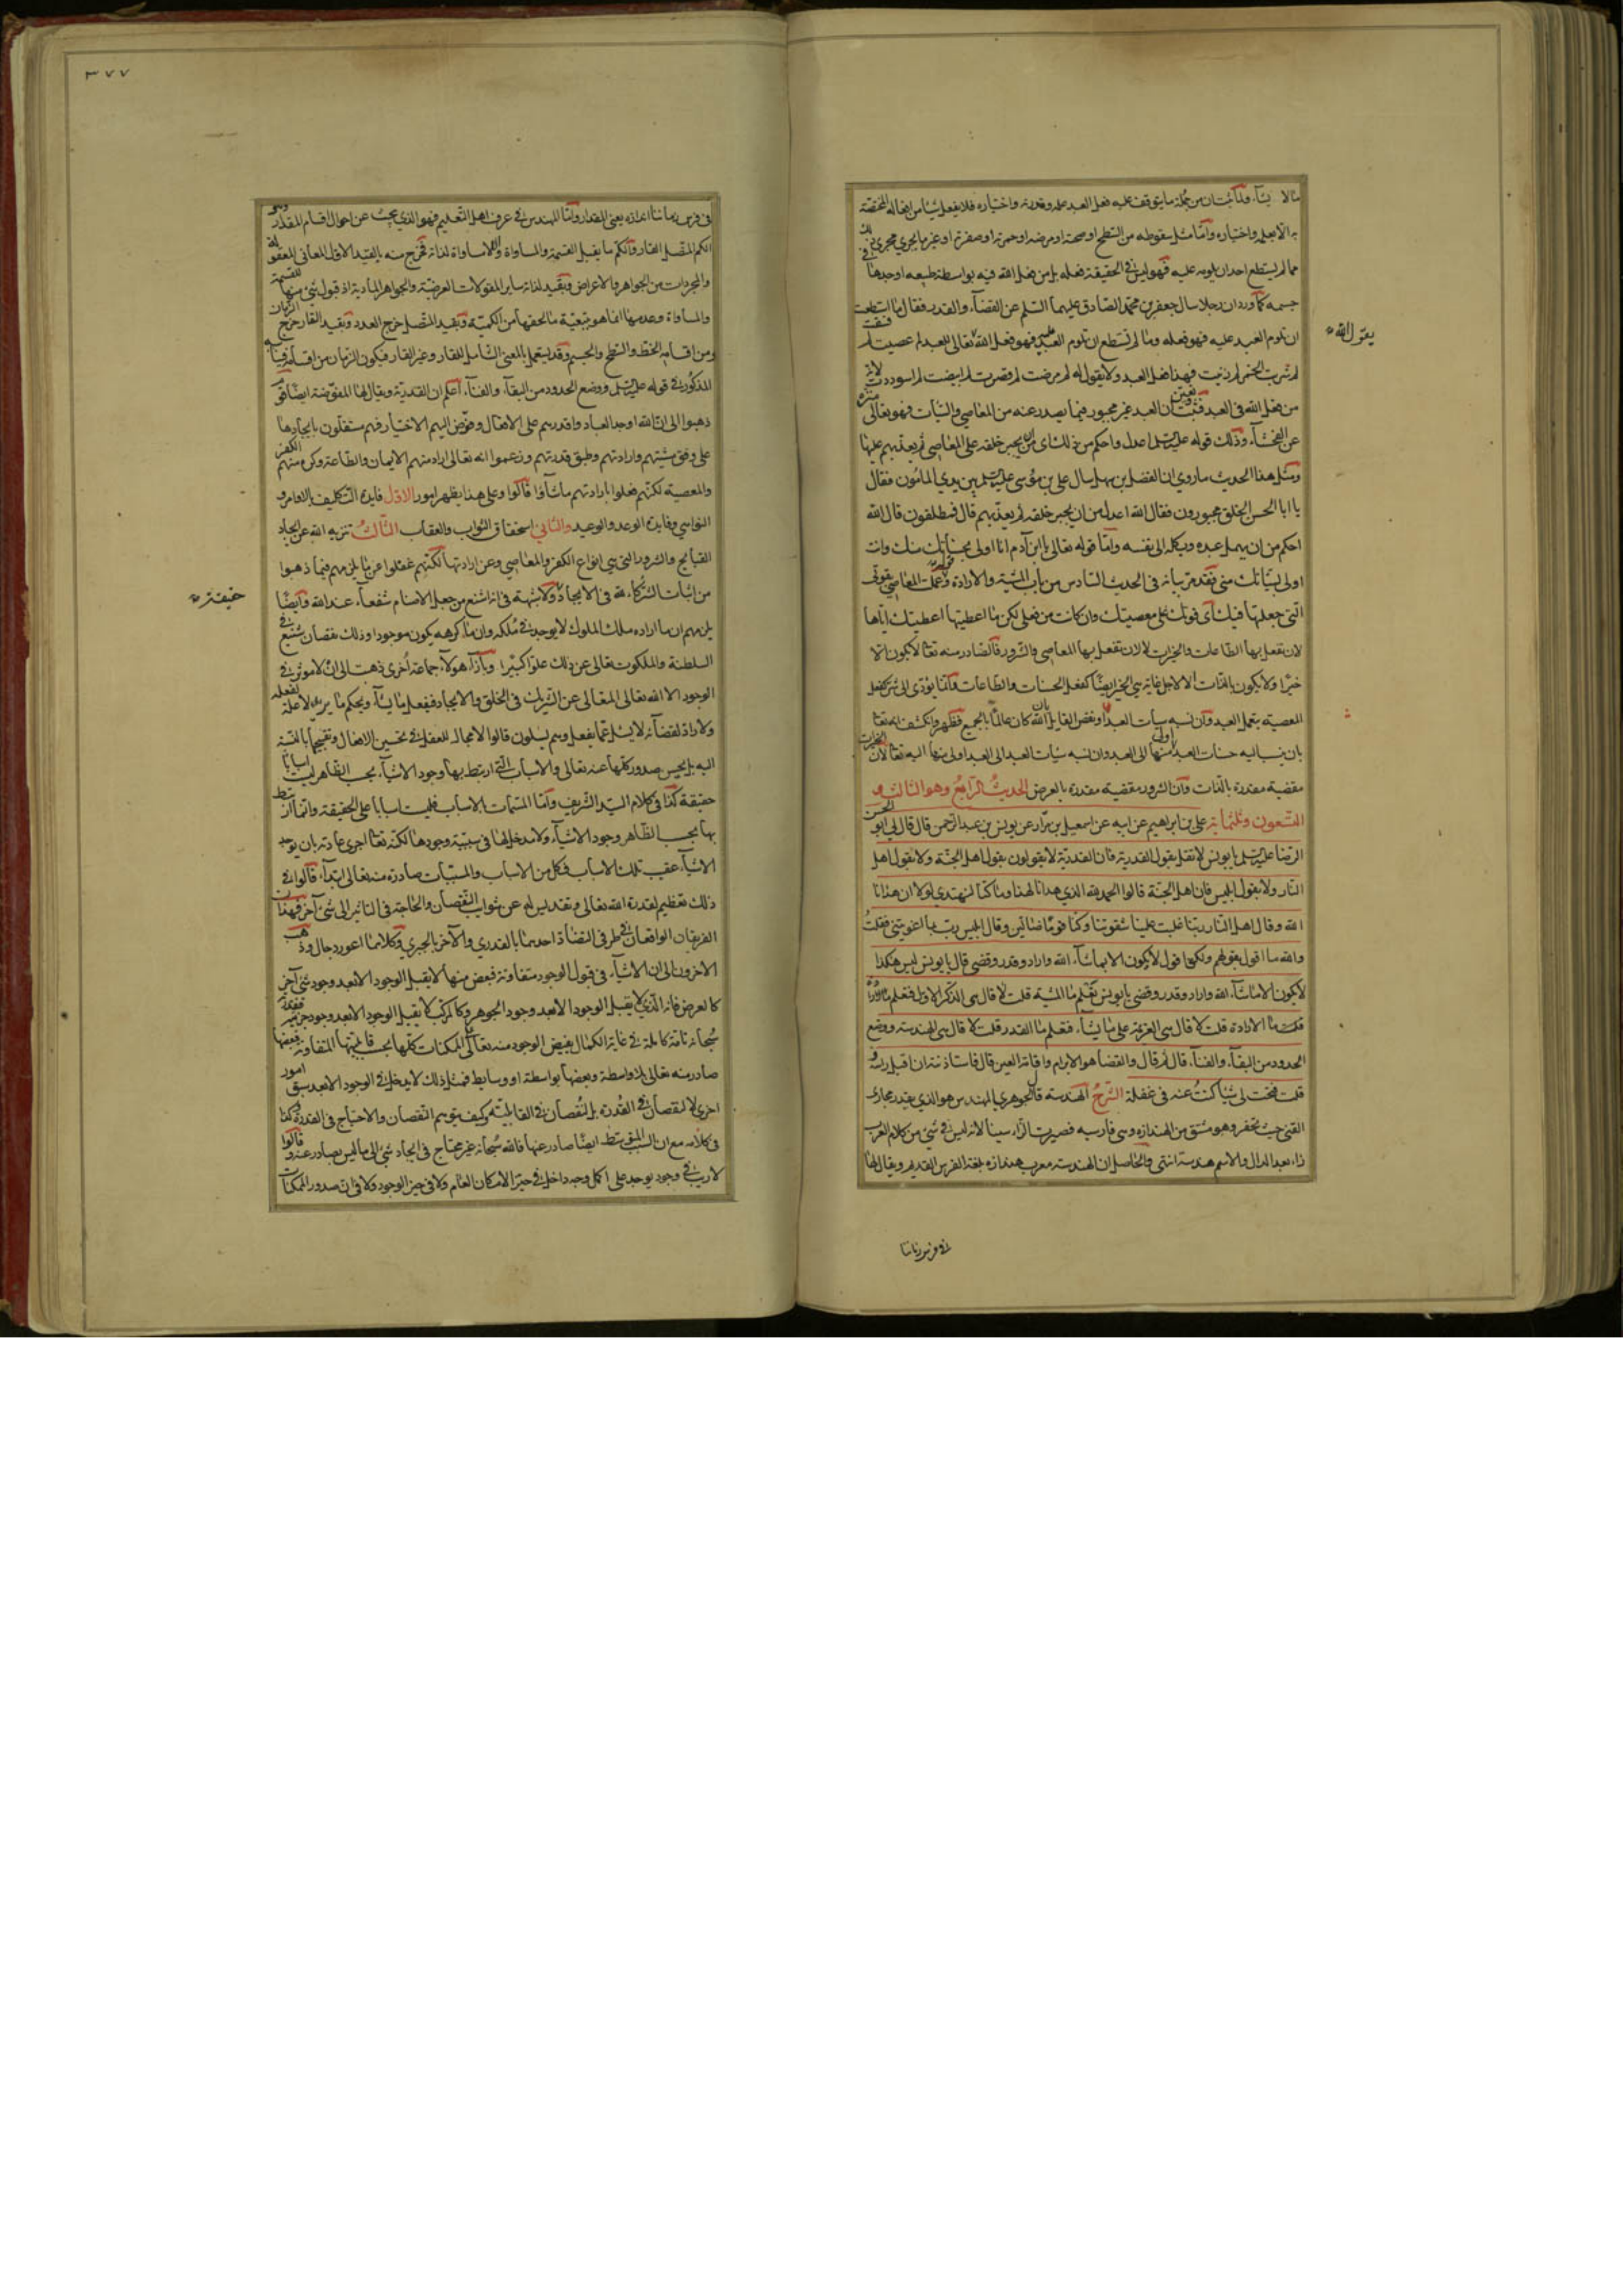 ما لا يشاء ولما ثبت ان من جملة ما يتوقف عليه فعل العبد علمه وقدرته واختياره فلا يفعل شيئا من افعاله المختصة
به الا بعلمه واختياره واما مثل سقوطه من السطح او صحته او مرضه او حمرته او صفرته او غيرها يجري مجرى ذلك
مما لم يستطع احد ان يلومه عليه فهو ليس في الحقيقة فعله بل من فعل الله فيه بواسطة طبيعه او حدها في
جسمه كما ورد ان رجلا سال جعفر بن محمد الصادق عليهما السلم عن القضاء والقدر فقال ما استطعت
ان تلوم العبد عليه فهو فعله وما لم تستطع ان تلوم العبد عليه فهو فعل الله تعالى للعبد لم عصيت لم فسقت
يقول الله
لم شربت الخمر لم زنيت فهذا فعل العبد ولا يقول له لم مرضت لم قصرت لم ابيضت لم اسوددت لانه
من فعل الله في العبد فثبت وتعين ان العبد غير مجبور فيما يصدر عنه من المعاصي والسيئات فهو تعالى منزه
عن الفحشاء وذلك قوله عليه السلم اعدل واحكم من ذلك اى من ان يجبر خلقه على المعاصي ثم يعذبهم عليها
ومثل هذا الحديث ما روي ان الفضل بن سهل سال على بن موسى عليه السلم بين يدي المامون فقال
يا ابا الحسن الخلق مجبورون فقال الله اعدل من ان يجبر خلقه ثم يعذبهم قال فمطلقون قال الله
احكم من ان يهمل عبده ويكله الى نفسه واما قوله تعالى يا ابن آدم انا اولى بحسناتك منك وانت
اولى بسيئاتك منى فقد مر بيانه في الحديث السادس من باب المشية والارادة وقوله عملت المعاصي بقوتي
التى جعلتها فيك اى قوتك على معصيتك وان كانت من فعلى لكن ما اعطيتها اعطيتك اياها
لان تفعل بها الطاعات والخيرات لا لان تفعل بها المعاصي والشرور فالصادر منه تعا لا يكون الا
خيرا ولا يكون بالذات الا لاجل غاية هي الخير ايضا كفعل الحسنات والطاعات وانما يؤدى الى شر كفعل
المعصية بتعمل العبد وان نسبه سيأت العبد او نغض القايل بان الله كان عالما بالجميع فظهر وانكشف انه تعا
بان ينسب اليه حسنات العبد اولى منها الى العبد وان نسبه سيئات العبد الى العبد اولى منها اليه تعا لان الخيرات
مقضية مقدرة بالذات وان الشرور مقضية مقدرة بالعرض الحديث الرابع وهو الثالث و
التسعون وثلثمائة على بن ابراهيم عن ابيه عن اسمعيل بن مرار عن يونس بن عبد الرحمن قال قال لي ابو الحسن
الرضا عليه السلم يا يونس لا تقل بقول القدرية فان القدرية لا يقولون بقول اهل الجنة ولا بقول اهل
النار ولا بقول ابليس فان اهل الجنة قالوا الحمد لله الذي هدانا لهذا وما كنا لنهتدي لولا ان هدانا
الله وقال اهل النار ربنا غلبت علينا شقوتنا وكنا قوما ضالين وقال ابليس رب بما اغويتني فقلت
والله ما اقول بقولهم ولكنى اقول لا يكون الا بما شاء الله واراد وقدر وقضى قال يا يونس ليس هكذا
لا يكون الا ما شاء الله واراد وقدر وقضى يا يونس تعلم ما المشية قلت لا قال هي الذكر الاول فتعلم
قلت ما الارادة قلت لا قال هي العزيمة على ما يشاء فتعلم ما القدر قلت لا قال هي الهندسة ووضع
الحدود من البقاء والفناء قال ثم قال والقضا هو الابرام واقامة العين قال فاستاذنته ان اقبل راسه و
قلت فتحت لى شيئا كنت عنه في غفلة الشرح الهندسة قال الجوهري المهندس هو الذي يقدر مجارى
القني حيث تحفر وهو مشتق من الهندازه وهي فارسيه فصيرت الزاء سينا لانه ليس في شئ من كلام العرب
زاء بعد الدال والاسم هندسة انتهى والحاصل ان الهندسة معرب هندازه بلغة الفرس القديم ويقال لها
في فرس زماننا
٣٧٧
في فرس زماننا اندازه يعنى المقدار واما المهندس في عرف اهل التعليم فهو الذي يبحث عن احوال اقسام المقدار وهو
الكم المتصل القار والكم ما يقبل القسمة والمساواة واللامساواة لذاته فخرج منه بالقيد الاول المعاني المعقولة
والمجردات من الجواهر والاعراض وبقيد لذاته ساير المقولات العرضية والجواهر المادية اذ قبول شئ منها للقسمة
والمساواة وعدمها انما هو بتبعية ما لحقها من الكمية وبقيد المتصل خرج العدد وبقيد القار خرج الزمان
ومن اقسامه الخط والسطح والجسم وقد يستعمل بالمعنى الشامل للقار وغير القار فيكون الزمان من اقسامه
المذكور في قوله عليه السلم ووضع الحدود من البقاء والفناء اعلم ان القدرية ويقال لها المفوضة ايضا قوم
ذهبوا الى ان الله اوجد العباد واقدرهم على الافعال وفوض اليهم الاختيار فهم مستقلون بايجادها
على وفق مشيتهم وارادتهم وطبق قدرتهم وزعموا انه تعالى اراد منهم الايمان والطاعة وكره منهم الكفر
والمعصية لكنهم فعلوا بارادتهم ما شاؤا قالوا وعلى هذا يظهر امور الاول فايدة التكليف بالاوامر و
النواهي وفايدة الوعد والوعيد والثاني استحقاق الثواب والعقاب الثالث تنزيه الله عن ايجاد
القبايح والشرور التي هي انواع الكفر والمعاصي وعن ارادتها لكنهم غفلوا عن ما يلزمهم فيما ذهبوا
من اثبات الشركاء لله في الايجاد ولا شبهة في انه اشنع من جعل الاصنام شفعاء عند الله وايضا
حقيقة
يلزمهم ان ما اراده ملك الملوك لا يوجد في ملكه وان ما كرهه يكون موجودا وذلك نقصان شنيع في
السلطنة والملكوت تعالى عن ذلك علوا كبيرا وبازاء هولاء جماعة اخرى ذهبت الى ان لا موثر في
الوجود الا الله تعالى المتعالى عن الشريك في الخلق والايجاد فيفعل ما يشاء ويحكم ما يريد لا علة لفعله
ولا راد لقضائه لا يسئل عما يفعل وهم يسئلون قالوا لا مجال للعقل في تحسين الافعال وتقبيحها بالنسبة
اليه بل يحسن صدور كلها عنه تعالى والاسباب التي ارتبط بها وجود الاشياء بحسب الظاهر ليست اسبابا
حقيقة كذا في كلام السيد الشريف واما المسميات بالاسباب فليست اسبابا على الحقيقة وانما ارتبط
بها بحسب الظاهر وجود الاشياء ولا مدخل لها في سببية وجودها لكنه تعا اجرى عادته بان يوجد
الاشياء عقيب تلك الاسباب فكل من الاسباب والمسببات صادرة منه تعالى ابتداء قالوا في
ذلك تعظيم لقدرة الله تعالى وتقديس له عن شوايب النقصان والحاجة في التاثير الى شئ آخر فهذان
الفريقان الواقعان في طرفي التضاد احدهما بالقدري والآخر بالجبري وكلاهما اعور دجال وذهب
الاخرون الى ان الاشياء في قبول الوجود متفاوتة فبعض منها لا يقبل الوجود الا بعد وجود شئ آخر
كالعرض فانه الذي لا يقبل الوجود الا بعد وجود الجوهر وكالمركب لا يقبل الوجود الا بعد وجود جزئيه فقدرته
سبحانه تامة كاملة في غاية الكمال يفيض الوجود منه تعالى على الممكنات كلها بحسب قابليتها المتفاوتة فبعضها
صادر منه تعالى بلا واسطة وبعضها بواسطة او وسايط فمثل ذلك لا يدخل في الوجود الا بعد سبق امور
اخرى لا لنقصان في القدرة بل لنقصان في القابلية وكيف يتوهم النقصان والاحتياج في القدرة كذا
في كلامه مع ان السبب المتوسط ايضا صادر عنها فالله سبحانه غير محتاج في ايجاد شئ الى ما ليس بصادر عنه وقالوا
لا ريب في وجود يوجد على اكمل وجه داخل في حيز الامكان العام ولا في حيز الوجود ولا في ان صدور الممكنات